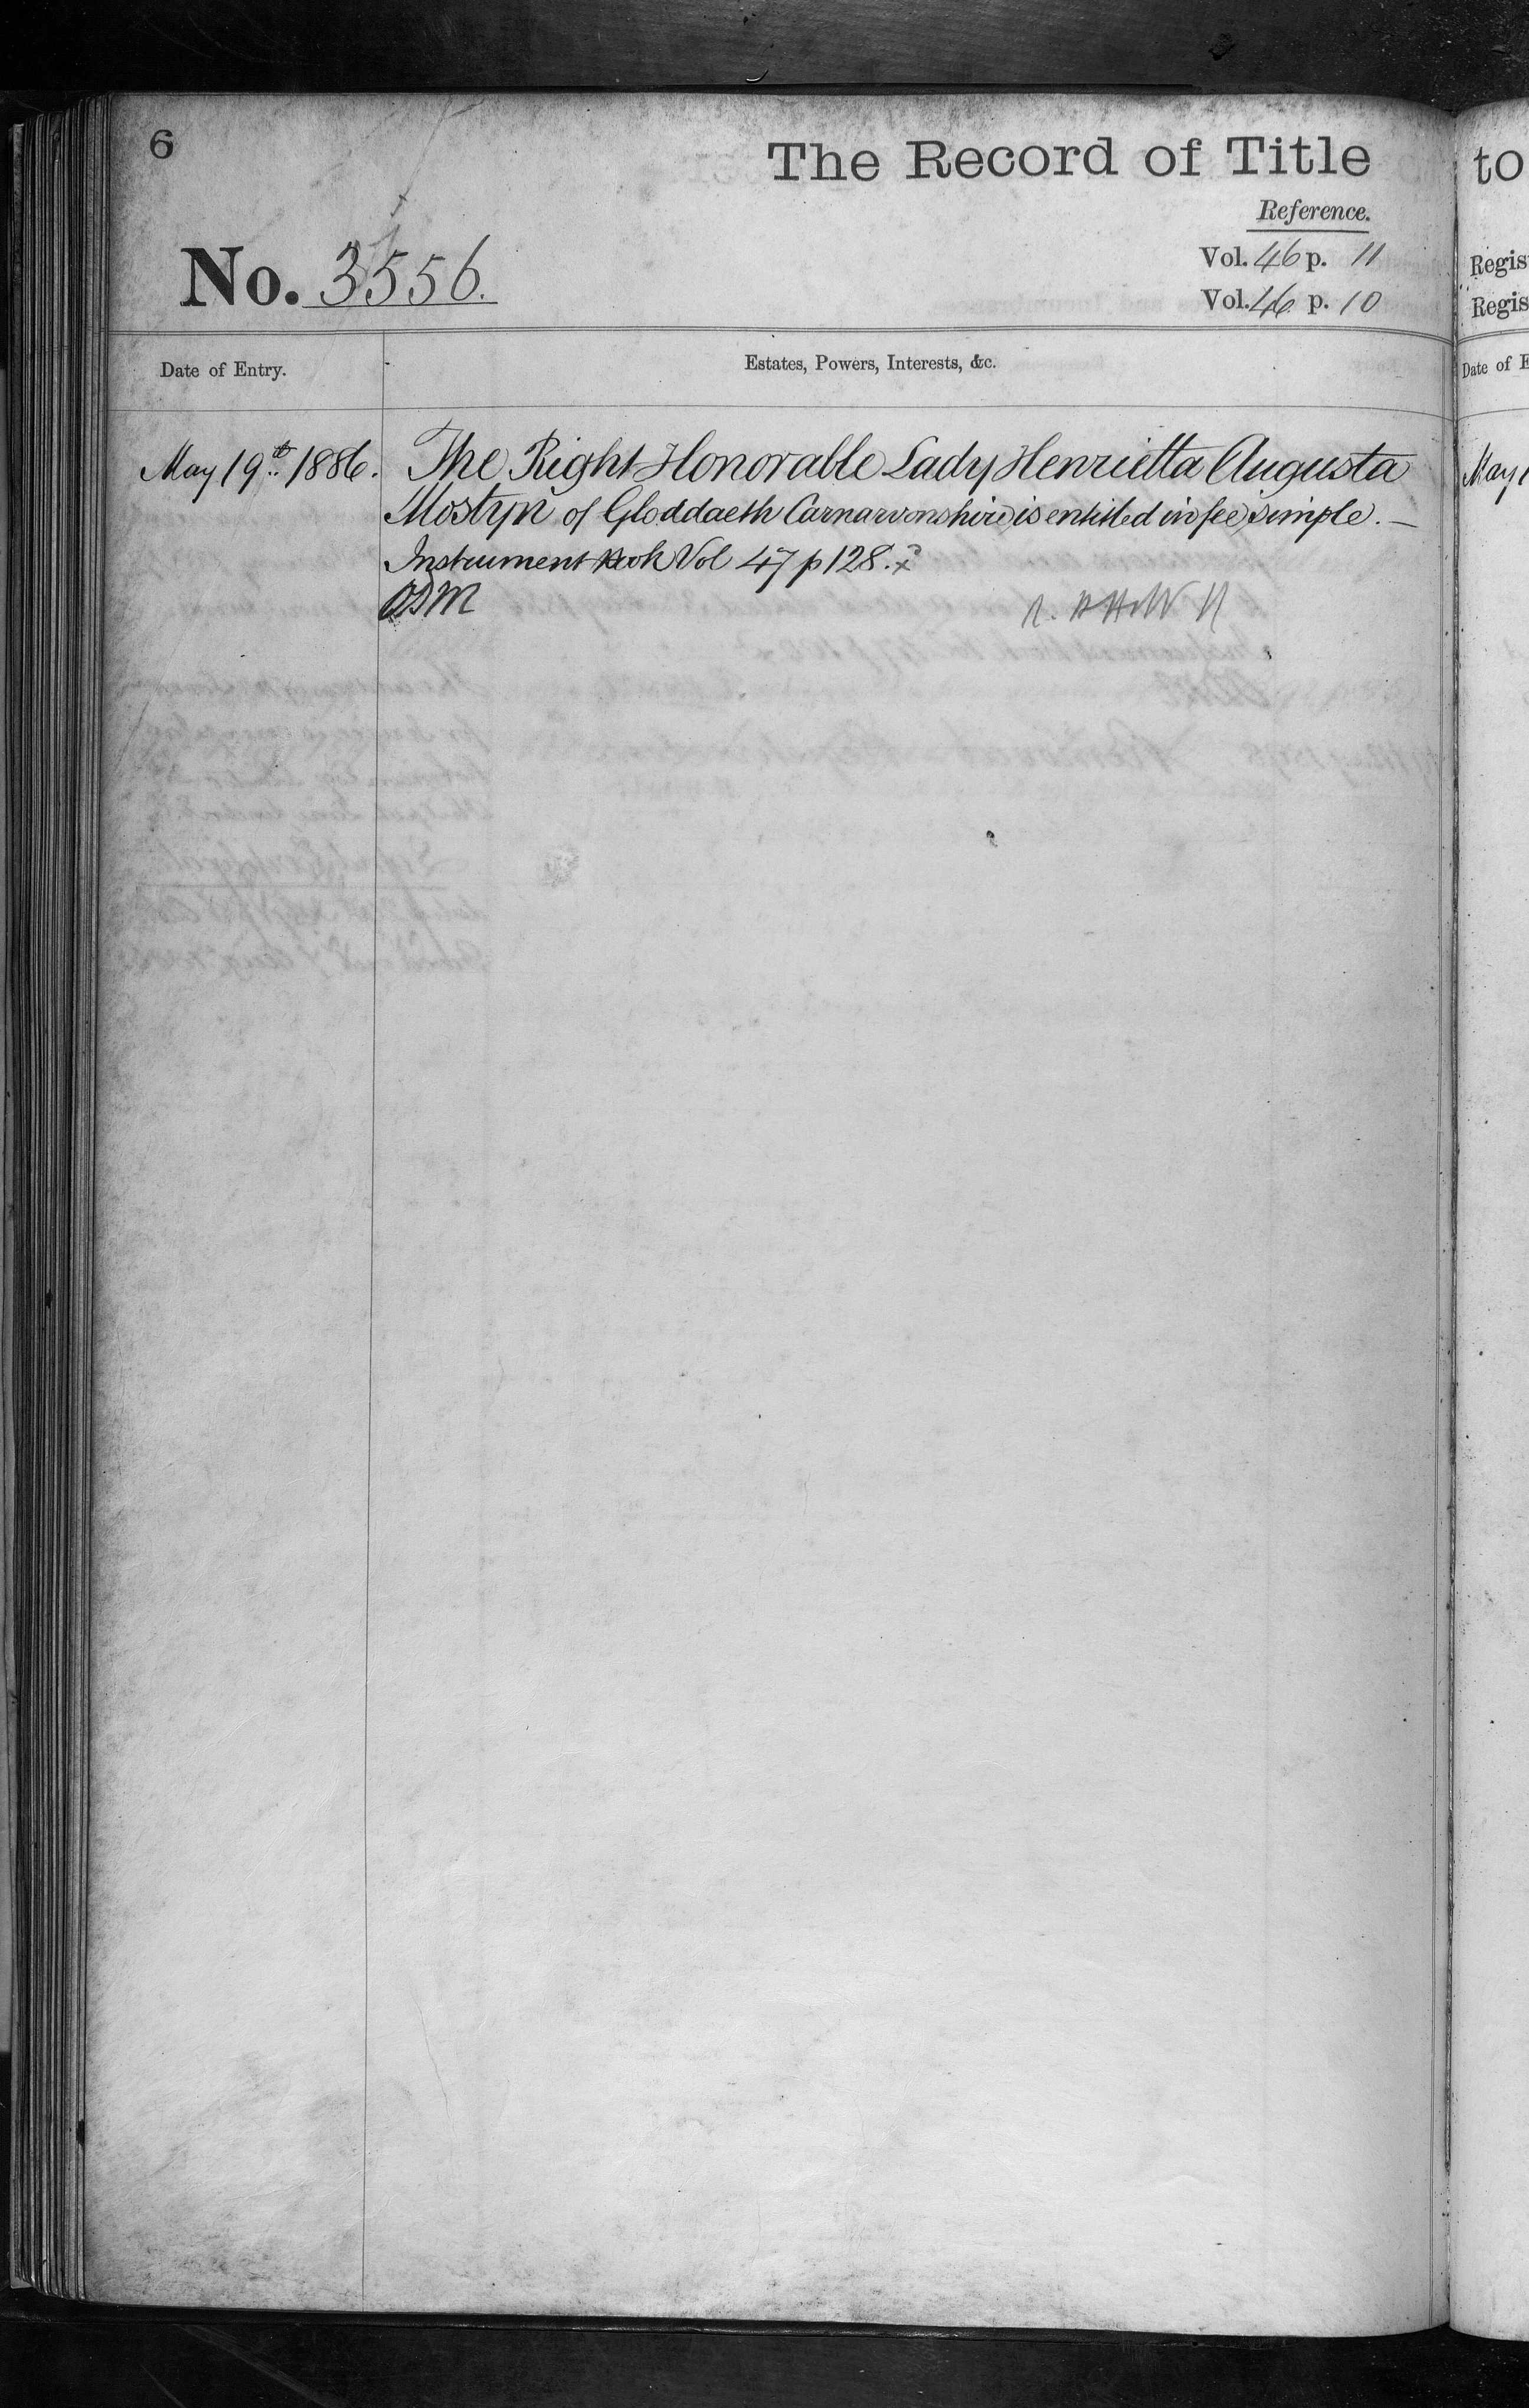 6
The Record of Title
Reference.
No. 3556.
Vol. 46 p. 11
Vol. 46 p. 10
Date of Entry.
Estates, Powers, Interests, &c.
May 19th 1886.
The Right Honorable Lady Henrietta Augusta
Mostyn of Gloddaeth Carnarvonshire is entitled in fee simple. —
Instrument Book Vol 47 p 128.
to
Regis
Regis
Date of E
May 1